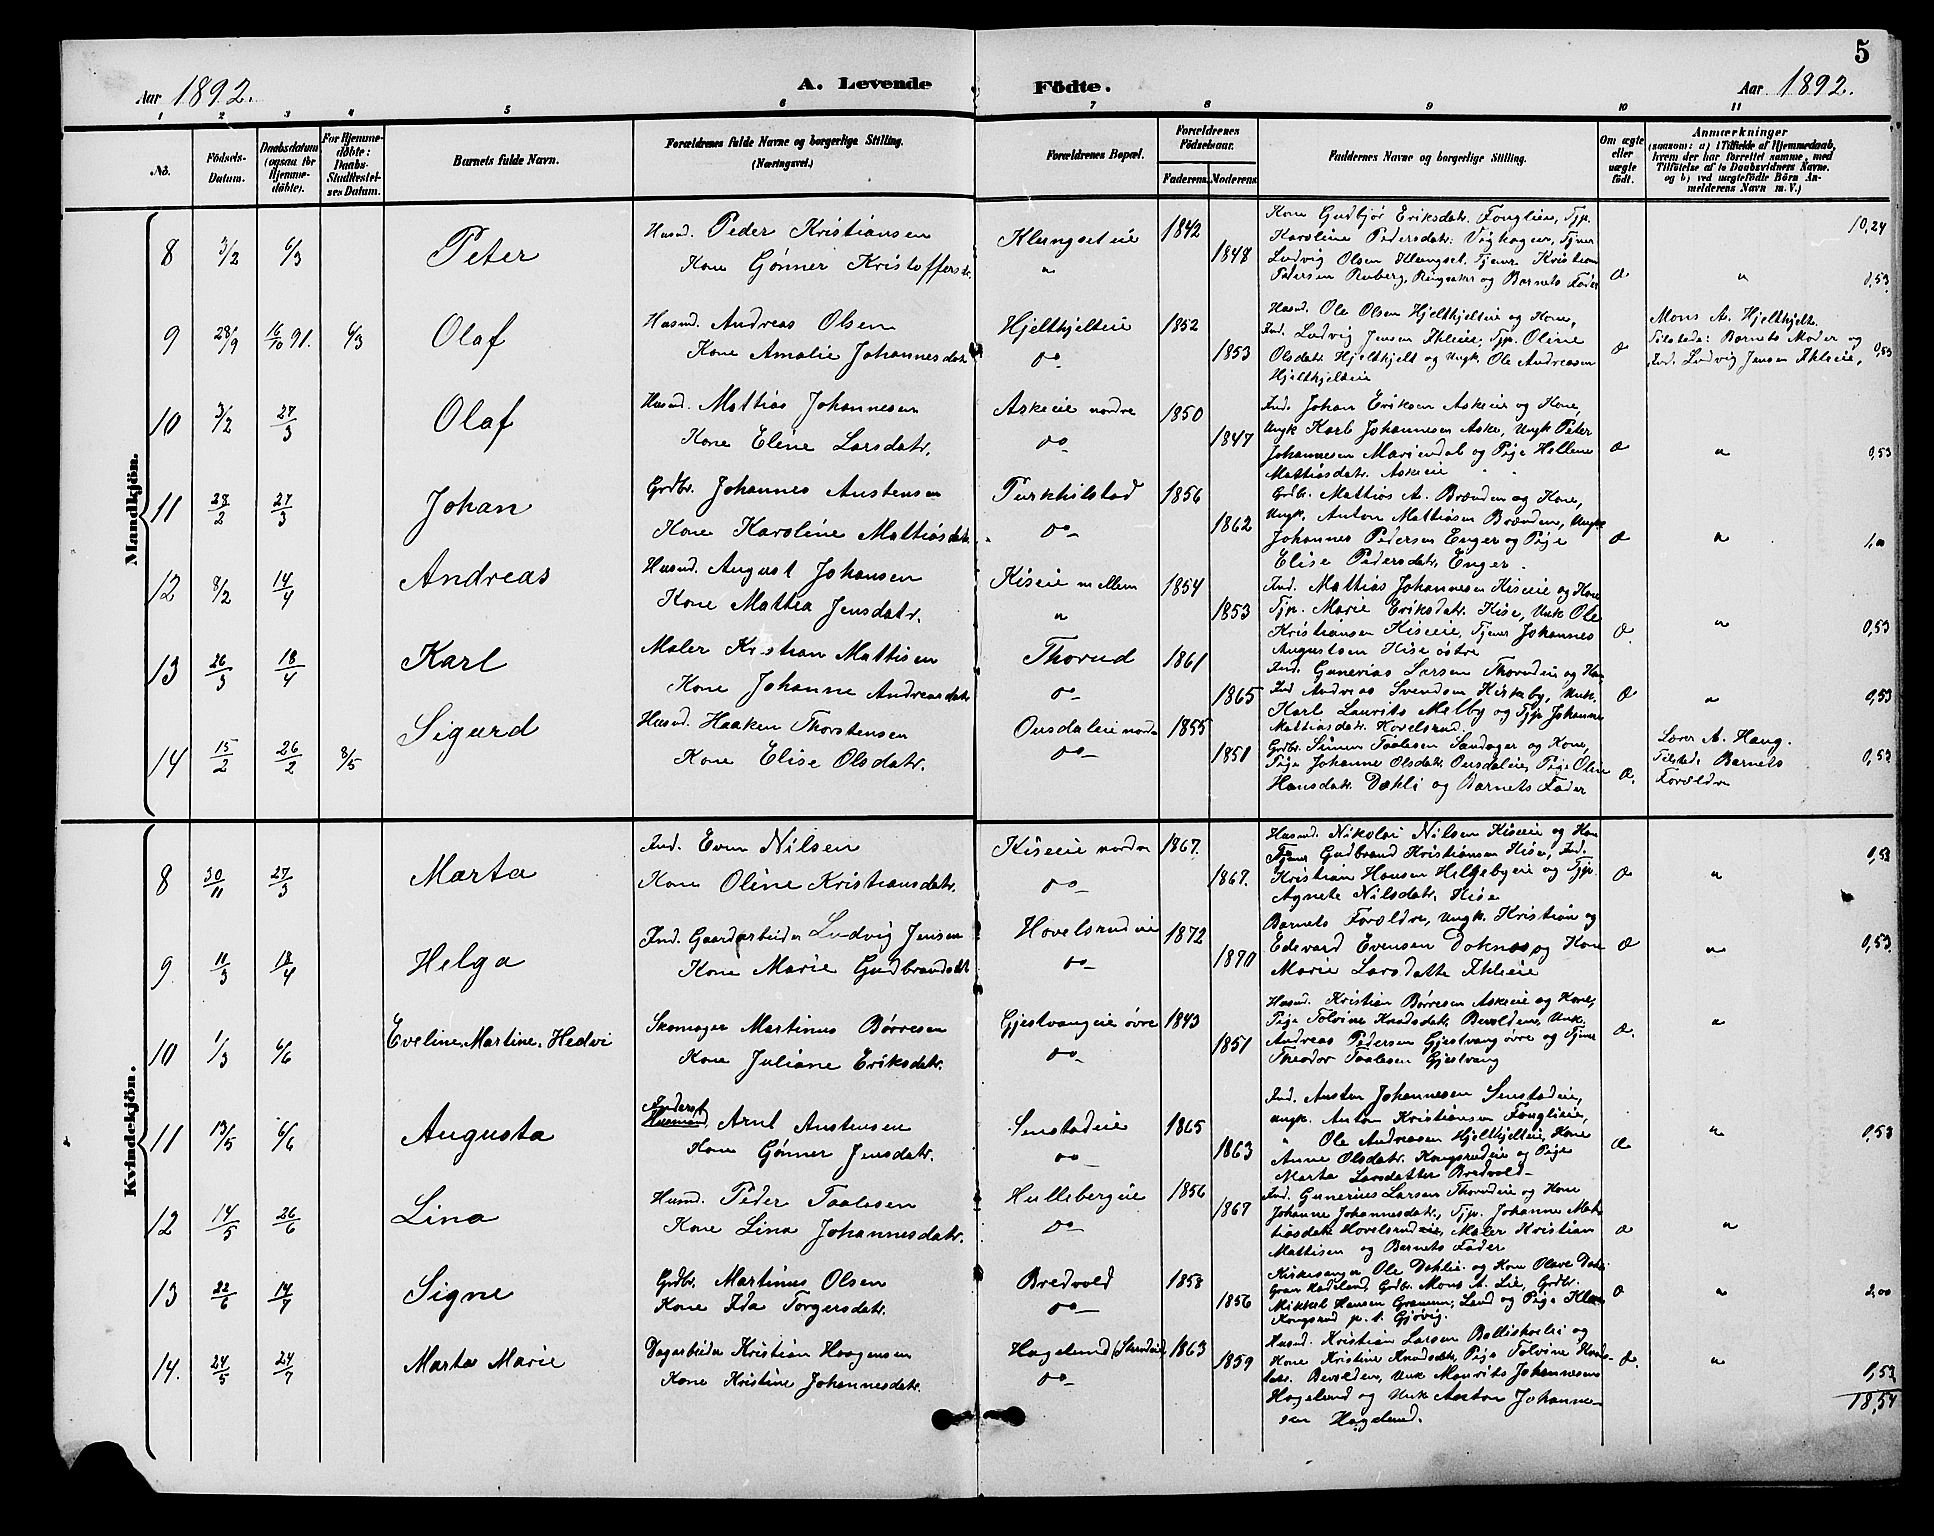 5
Aar 1892. A. Levende Födte. Aar 1892.
1 2 3 4 5 6 7 8 9 10 11
No. Födsels-Datum. Daabsdatum (ogsaa for Hjemmedøbte). For Hjemmedøbte: Daabs-Stadfæstelses Datum. Barnets fulde Navn. Forældrenes fulde Navne og borgerlige Stilling. (Næringsvei.) Forældrenes Bopæl. Forældrenes Födselsaar. Faderens. Moderens. Faddernes Navne og borgerlige Stilling. Om ægte eller uægte født. Anmærkninger (saasom: a) i Tilfælde af Hjemmedaab, hvem der har forrettet samme, med Tilföielse af to Daabsvidners Navne, og b) ved uægtefödte Börn Anmelderens Navn m. V.)
Mandkjön.
8 3/2 6/3 Peter
Husmd. Peder Kristiansen
Kone Gønner Kristoffersd.
Klungseteie 1842
" 1848
Kone Gudbjør Eriksdatr. Fonglieie, Tjp.
Karoline Pedersdatr. Vighagen, Tjener
Ludvig Olsen Klungset, Tjener Kristian
Pedersen Ruberg, Ringsaker og Barnets Fader
Æ " 10,24
0,53
9 28/9 16/10 91. 6/3 Olaf
Husmd. Andreas Olsen
Kone Amalie Johannesdatr.
Hjelthjelteie 1852
do 1853
Husmd. Ole Olsen Hjelthjelteie og Kone,
Ind. Ludvig Jensen Ihleeie, Tjp. Oline
Olsdatr. Hjelthjelt og Ungk. Ole Andreasen
Hjelthjelteie
Æ
Mons A. Hjelthjelt.
Tilstede: Barnets Moder og
Ind. Ludvig Jensen Ihleeie,
0,53
10 3/2 27/3 Olaf
Husmd. Mattias Johannesen
Kone Eline Larsdatr.
Askeeie nordre 1850
do 1847
Ind. Johan Eriksen Askeeie og Kone,
Ungk Karl Johannesen Aske, Ungk Peter
Johannesen Mariendal og Pige Hellene
Mattiasdatr. Askeeie
Æ " 0,53
11 28/2 27/3 Johan
Grdbr. Johannes Austensen
Kone Karoline Mattiasdatr.
Purkhilstad 1856
do 1862
Grdb. Mattias A. Brænden og Kone,
Ungk. Anton Mattiasen Brænden, Ungk
Johannes Pedersen Enger og Pige
Elise Pedersdatr. Enger.
Æ " 1,00
12 8/2 14/4 Andreas
Husmd. August Johansen
Kone Mathea Jensdatr.
Kiseeie mellem 1854
" 1853
Ind. Mattias Johannesen Kiseeie og Kone
Tjp. Marie Eriksdatr. Kise, Unk Ole
Kristiansen Kiseeie, Tjener Johannes
Augustsen Kise østre
Æ " 0,53
13 26/3 18/4 Karl
Maler Kristian Mattisen
Kone Johanne Andreasdatr.
Thorud 1861
do 1865
Ind. Gunerius Larsen Thorudeie og Kone,
Ind Andreas Svendsen Kirkeby, Unk.
Karl Laurits Melby og Tjp. Johanne
Mattiasdatr. Hovelsrud
Æ " 0,53
14 15/2 26/2 8/5 Sigurd
Husmd. Haaken Thorstensen
Kone Elise Olsdatr.
Onsdaleie nordre 1855
do 1851
Grdbr. Simen Taalesen Sandager og Kone,
Pige Johanne Olsdatr. Onsdaleie, Pige Oline
Hansdatr. Dæhli og Barnets Fader
Æ.
Lærer A. Haug.
Tilstede Barnets
Forældre
0,53
Kvindekjön.
8 30/11 27/3 Marta
Ind. Even Nilsen
Kone Oline Kristiansdatr.
Kiseeie nordre 1867.
do 1867.
Husmd. Nikolai Nilsen Kiseeie og Kone
Tjener Gudbrand Kristiansen Kise, Ind.
Kristian Hansen Helgebyeie og Tjp.
Agnete Nilsdatr. Kise
Æ " 0,53
9 11/3 18/4 Helga
Ind. Gaardarbeider Ludvig Jensen
Kone Marie Gudbrandsdatr
Hovelsrudeie 1872
do 1870
Barnets Forældre, Ungk. Kristian og
Edevard Evensen Doknes og Kone
Marie Larsdatter Ihleeie
Æ " 0,53
10 1/3 6/6 Eveline, Martine, Hedvi
Skomager Martinus Børresen
Kone Juliane Eriksdatr.
Gjestvangeie øvre 1843
do 1851
Husmd. Kristian Børresen Askeeie og Kone,
Pige Tolvine Knudsdatr. Bevolden, Unk.
Andreas Pedersen Gjestvang øvre og Tjener
Theodor Taalesen Gjestvang
Æ. "
11 13/5 6/6 Augusta
Inderst
Husmand Arnt Austensen
Kone Gønner Jensdatr.
Senstadeie 1865
do 1863
Ind. Austen Johannesen Senstadeie,
Ungk. Anton Kristiansen Fonglieie,
" Ole Andreasen Hjelthjelteie, Kone
Anne Olsdatr. Kongsrudeie og Pige
Marta Larsdatter Bredvold
Æ " 0,53
12 14/5 26/6 Lina
Husmd. Peder Taalesen
Kone Lina Johannesdatr.
Hullebergeie 1856
do 1867
Ind. Gunerius Larsen Thorudeie og Kone
Johanne Johannesdatr., Tjp. Johanne Mat-
tiasdatr Hovelsrudeie, Maler Kristian
Mattisen og Barnets Fader
Æ "
13 22/6 14/7 Signe
Grdbr. Martinus Olsen
Kone Ida Torgersdatr.
Bredvold 1853
do 1856
Kirkesanger Ole Dæhlie og Kone Olave Dæhli
Gran Hadeland, Grdbr. Mons A. Lie, Grdbr.
Mikkel Hansen Grammen, Land og Pige Klara
Kongsrud p. t. Gjøvig.
Æ " 2,00
14. 24/5 24/7 Marta Marie
Dagarbeider Kristian Haagensen
Kone Kristine Johannesdatr.
Hagelund (Strandeie) 1863
do 1859
Husmd. Kristian Larsen Balliskeeli og
Kone Kristine Knudsdatr., Pige Tolvine Knuds-
datr. Bevolden, Unk Maurits Johannesen
Hagelund og Unk Anton Johanne-
sen Hagelund.
Æ. " 0,53
18,54